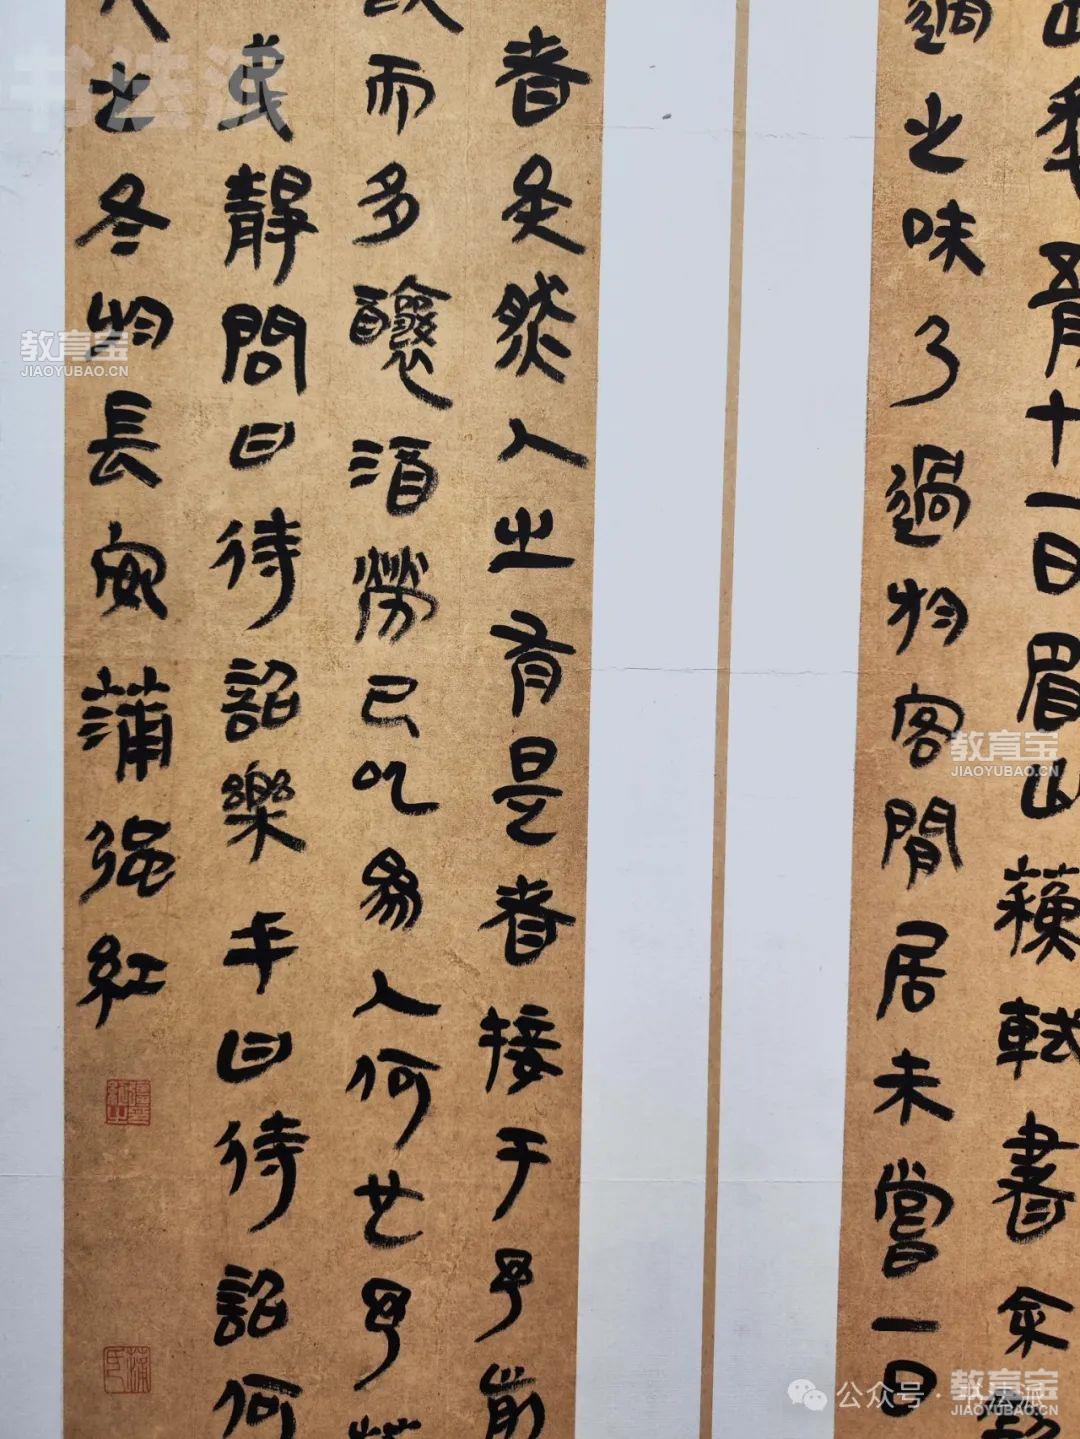 十一日眉山蘓軾書余
適之味乃過於客閒居未嘗一日
者矣然人之有是者接于予前
而多釀酒勞己以為人何哉予
或靜問曰待詔樂乎曰待詔何
之冬於長安蒲强紅
书法派
教育宝
JIAOYUBAO.CN
教育宝
JIAOYUBAO.CN
教育宝
JIAOYUBAO.CN
公众号·书法派